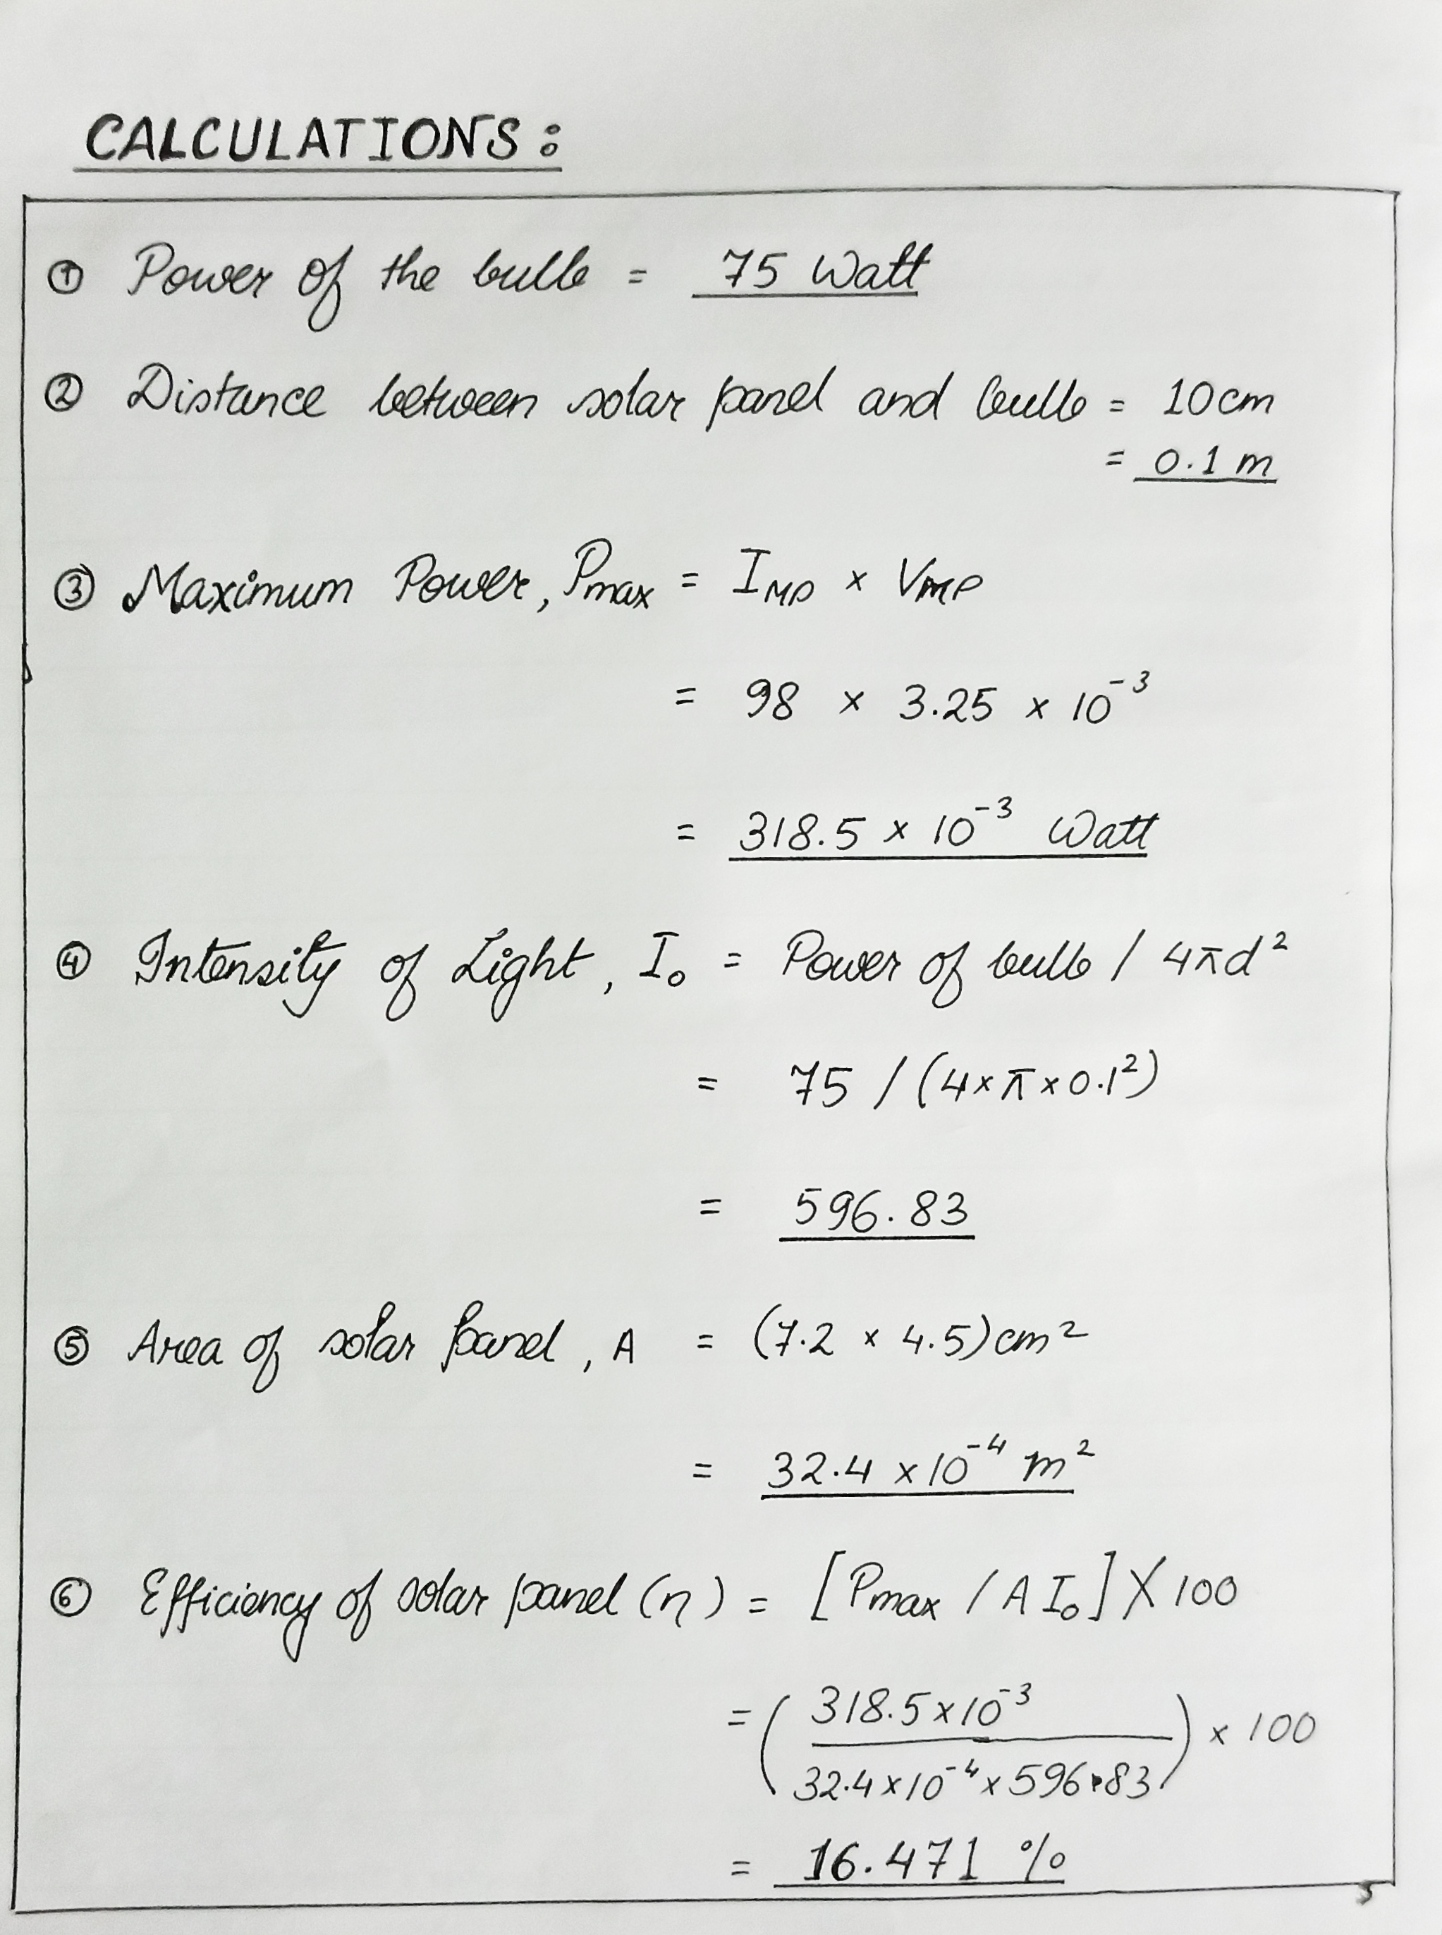 CALCULATIONS:
① Power of the bulb = 75 Watt
② Distance between solar panel and bulb = 10cm
= 0.1 m
③ Maximum Power, Pmax = IMP × VMP
= 98 × 3.25 × 10⁻³
= 318.5 × 10⁻³ Watt
④ Intensity of Light, I₀ = Power of bulb / 4πd²
= 75 / (4×π×0.1²)
= 596.83
⑤ Area of solar panel, A = (7.2 × 4.5)cm²
= 32.4 ×10⁻⁴ m²
⑥ Efficiency of solar panel (η) = [Pmax / A I₀] × 100
= (318.5×10⁻³ / 32.4×10⁻⁴×596.83) × 100
= 16.471 %